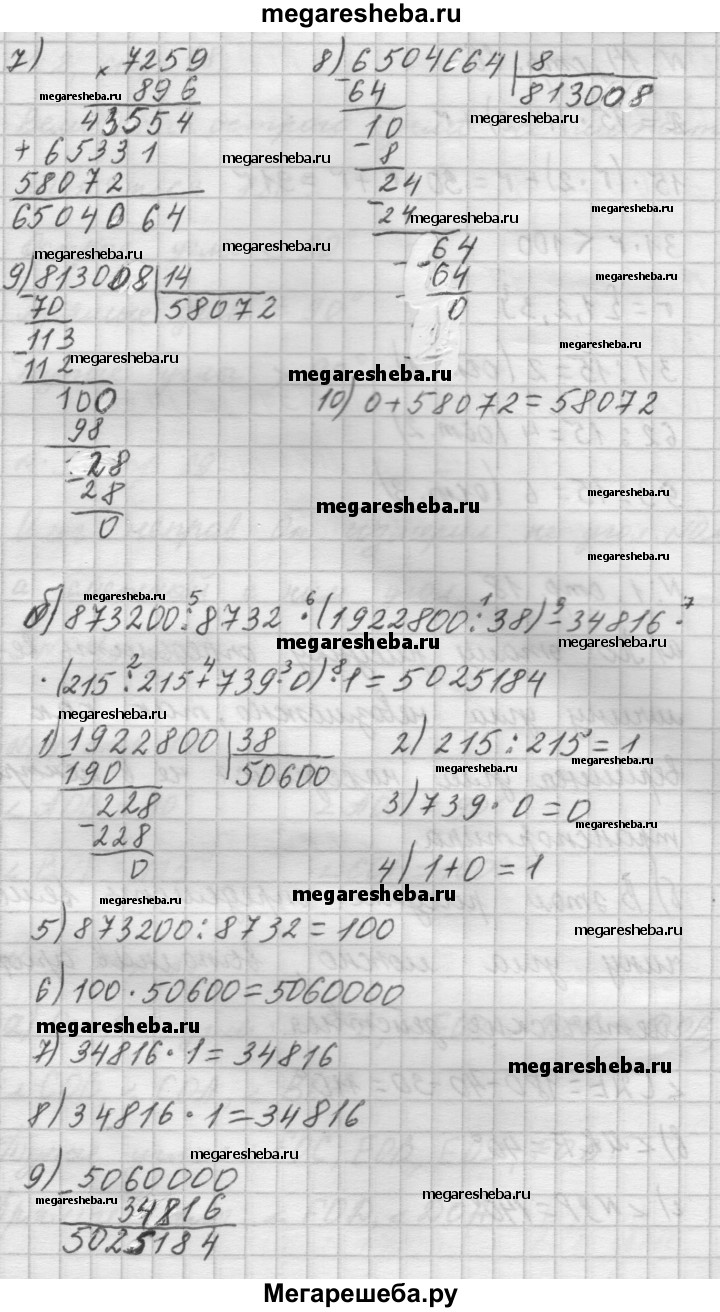 megaresheba.ru
7) × 7259
896
43554
+ 65331
58072
6504064
8) 6504664 | 8
813008
- 64
10
- 8
24
- 24
64
- 64
0
9) 813008 | 14
58072
- 70
113
- 112
100
98
28
- 28
0
10) 0+58072=58072
б) 873200:8732·(1922800:38)-34816·
·(215:215+739·0):1=5025184
1) 1922800 | 38
50600
190
228
- 228
0
2) 215:215=1
3) 739·0=0
4) 1+0=1
5) 873200:8732=100
6) 100·50600=5060000
7) 34816·1=34816
8) 34816·1=34816
9) - 5060000
34816
5025184
Мегарешеба.ру